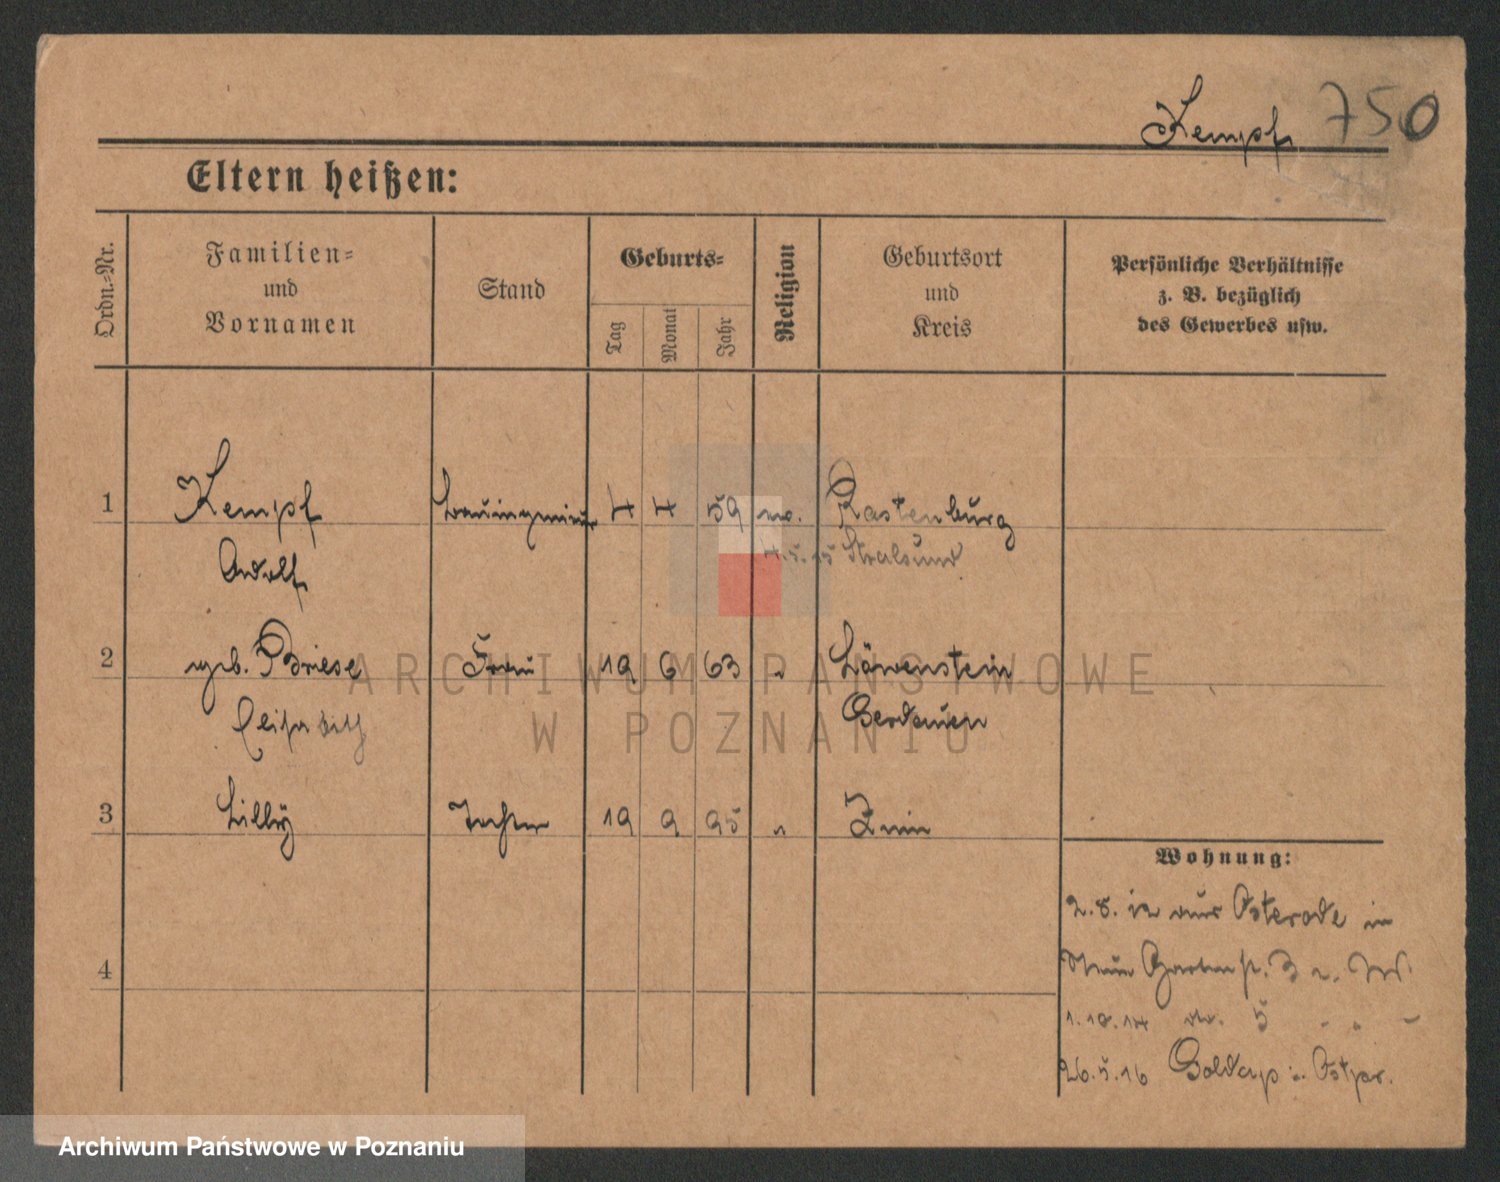 Kempf 750
Eltern heißen:
Ordn.-Nr.
Familien-
und
Vornamen
Stand
Geburts-
Tag
Monat
Jahr
Religion
Geburtsort
und
Kreis
Persönliche Verhältnisse
z. B. bezüglich
des Gewerbes usw.
1 Kempf 4 4 59 ev. Rastenburg
Adolf 4.5.15 Stralsund
2 geb. Briese Frau 19 6 63 " Löwenstein
Elisabeth Gerdauen
3 Lilly Tochter 19 9 95 " Znin
Wohnung:
2.8.12 aus Osterode in
Neue Gartenstr. 3
4
1.10.14 do. 5 " " –
26.5.16 Goldap i. Ostpr.
ARCHIWUM PAŃSTWOWE
W POZNANIU
Archiwum Państwowe w Poznaniu